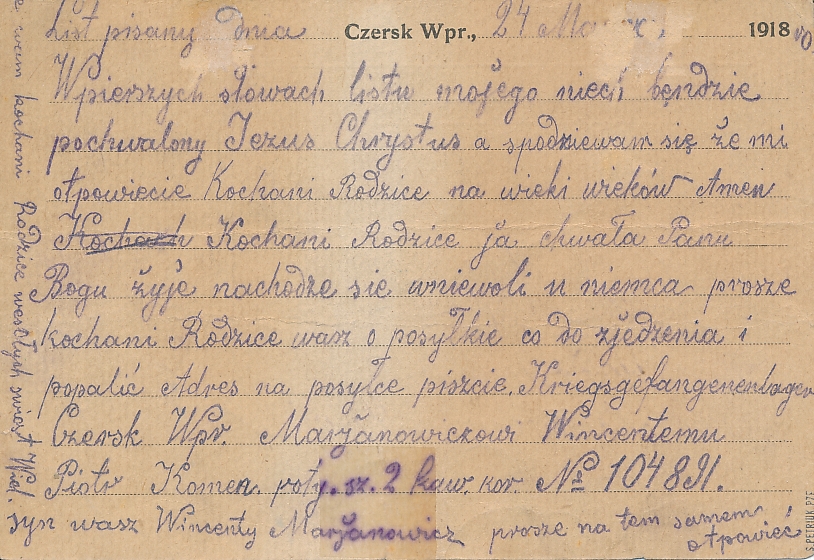 List pisany dnia Czersk Wpr., 24 1918
Wpierszych słowach listu mojego niech bęndzie
pochwalony Jezus Chrystus a spodziewam się że mi
otpowiecie Kochani Rodzice na wieki wieków Amen
Kochani Rodzice ja chwała Panu
Bogu żyje nachodze sie wniewoli u niemca prosze
kochani Rodzice wasz o posyłkie co do zjedzenia i
popalić Adres na posyłce piszcie. Kriegsgefangenenlager
Czersk Wpr. Marżanowiczowi Wincentemu
Piotr Komen. roty. sz. 2 kaw. kor. No 104891.
syn wasz Wincenty Marżanowicz prosze na tem samem
otpowieć
wam kochani Rodzice wesełych swiąt Wiel.
S. PETRIUK PZF